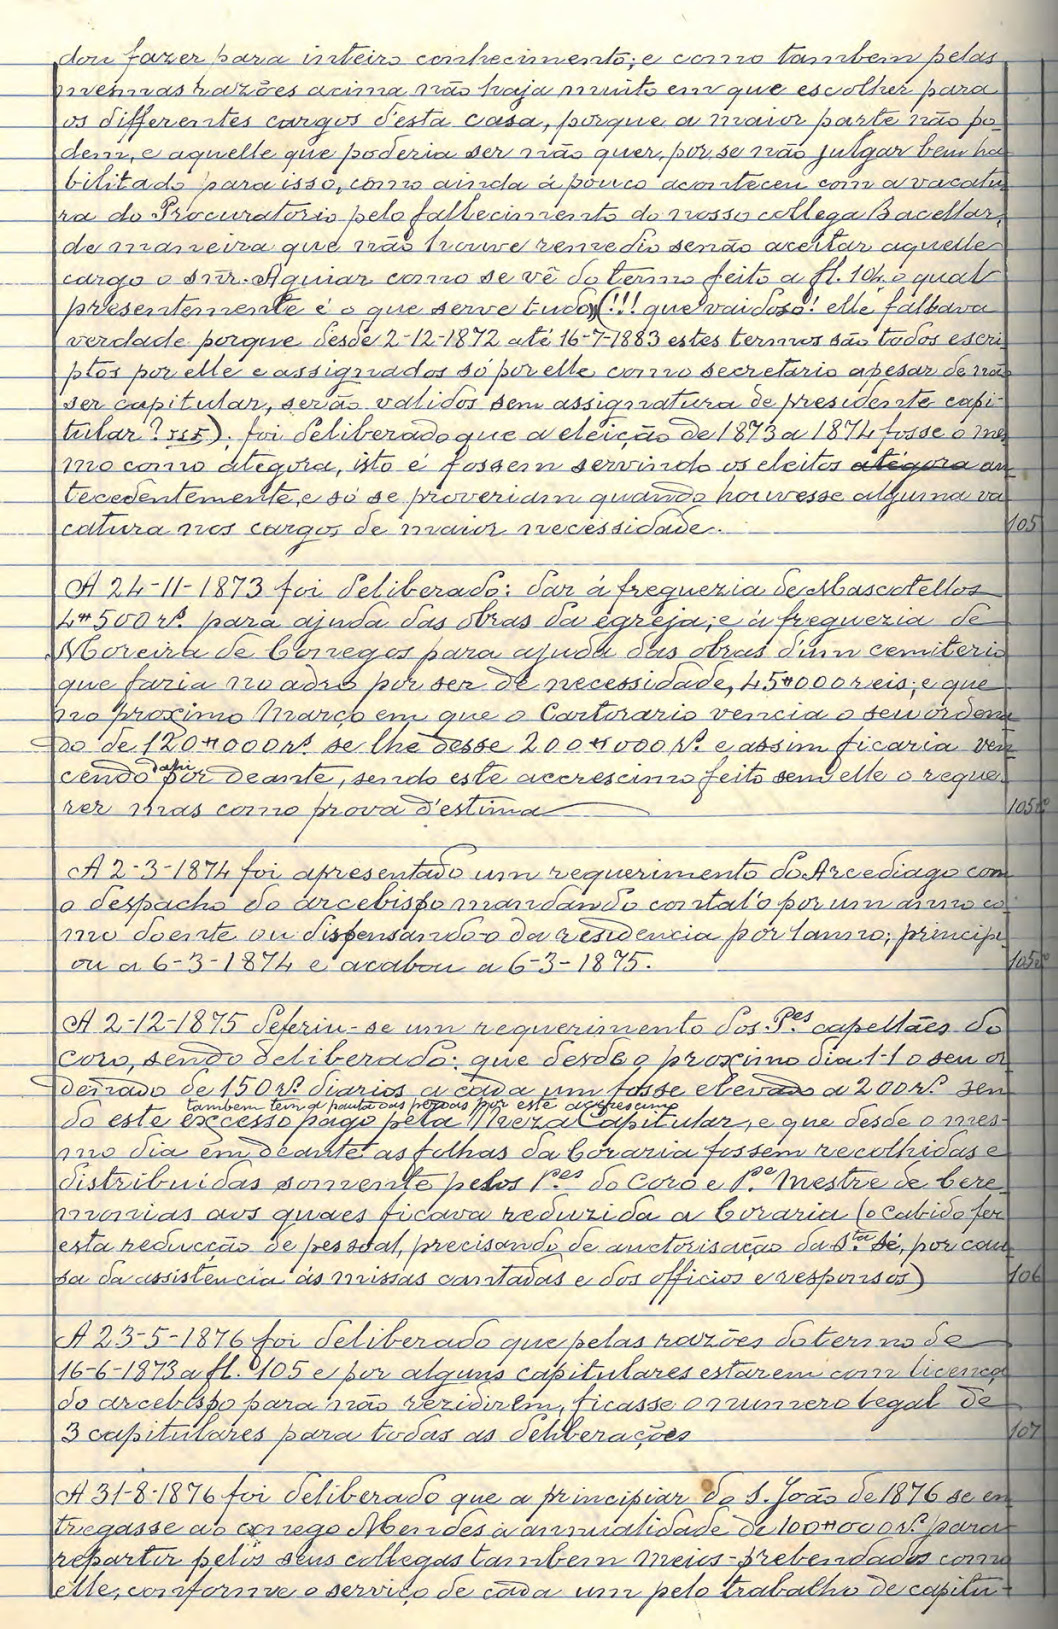 dou fazer para inteiro conhecimento; e como tambem pelas
mesmas razões acima não haja muito em que escolher para
os differentes cargos d'esta casa, porque a maior parte não po-
dem, e aquelle que poderia ser não quer, por se não julgar bem ha
bilitado para isso, como ainda á pouco aconteceu com a vacatu
ra do Procuratorio pelo fallecimento do nosso collega Bacellar,
de maneira que não houve remedio senão aceitar aquelle
cargo o snr. Aguiar como se vê do termo feito a fl. 104 o qual
presentemente é o que serve tudo, (!!! que vaidoso! elle faltava
verdade porque desde 2-12-1872 até 16-7-1883 estes termos são todos escri
ptos por elle e assignados só por elle como secretario apesar de não
ser capitular, serão validos sem assignatura de presidente capi-
tular? sss). foi deliberado que a eleição de 1873 a 1874 fosse o mes
mo como atégora, isto é fossem servindo os eleitos atégora an
tecedentemente, e só se proveriam quando houvesse alguma va
catura nos cargos de maior necessidade.
105
A 24-11-1873 foi deliberado: dar á freguezia de Mascotellos
4#500 rs. para ajuda das obras da egreja; e á freguezia de
Moreira de Conegos para ajuda das obras d'um cemiterio
que faria no adro por ser de necessidade, 45#000 reis; e que
no proximo Março em que o Cartorario vencia o seu orden
do de 120#000 rs. se lhe desse 200#000 rs. e assim ficaria ven
cendo d'ahi por deante, sendo este accrescimo feito sem elle o reque
rer mas como prova d'estima
105v
A 2-3-1874 foi apresentado um requerimento do Arcediago com
o despacho do arcebispo mandando contal'o por um anno co
mo doente ou dispensando-o da residencia por 1 anno; princip
ou a 6-3-1874 e acabou a 6-3-1875.
105v
A 2-12-1875 deferiu-se um requerimento dos P.es capellães do
coro, sendo deliberado: que desde o proximo dia 1-1 o seu or
denado de 150 rs. diarios a cada um fosse elevado a 200 rs. sen
tambem tem a pauta das perdas por este accrescimo
do este excesso pago pela Meza Capitular, e que desde o mes-
mo dia em deante as folhas da Coraria fossem recolhidas e
distribuidas somente pelos P.es do Coro e P.e Mestre de Cere
monias aos quaes ficava reduzida a Coraria (o cabido fez
esta reducção de pessoal, precisando de auctorisação da S.ta Sé, por cau
sa da assistencia ás missas cantadas e dos officios e responsos)
106
A 23-5-1876 foi deliberado que pelas razões do termo de
16-6-1873 a fl. 105 e por alguns capitulares estarem com licença
do arcebispo para não rezidirem, ficasse o numero legal de
3 capitulares para todas as deliberações
107
A 31-8-1876 foi deliberado que a principiar do S. João de 1876 se en
tregasse ao conego Mendes a annualidade de 100#000 rs. para
repartir pelos seus collegas tambem meios-prebendados como
elle, conforme o serviço de cada um pelo trabalho de capitu-